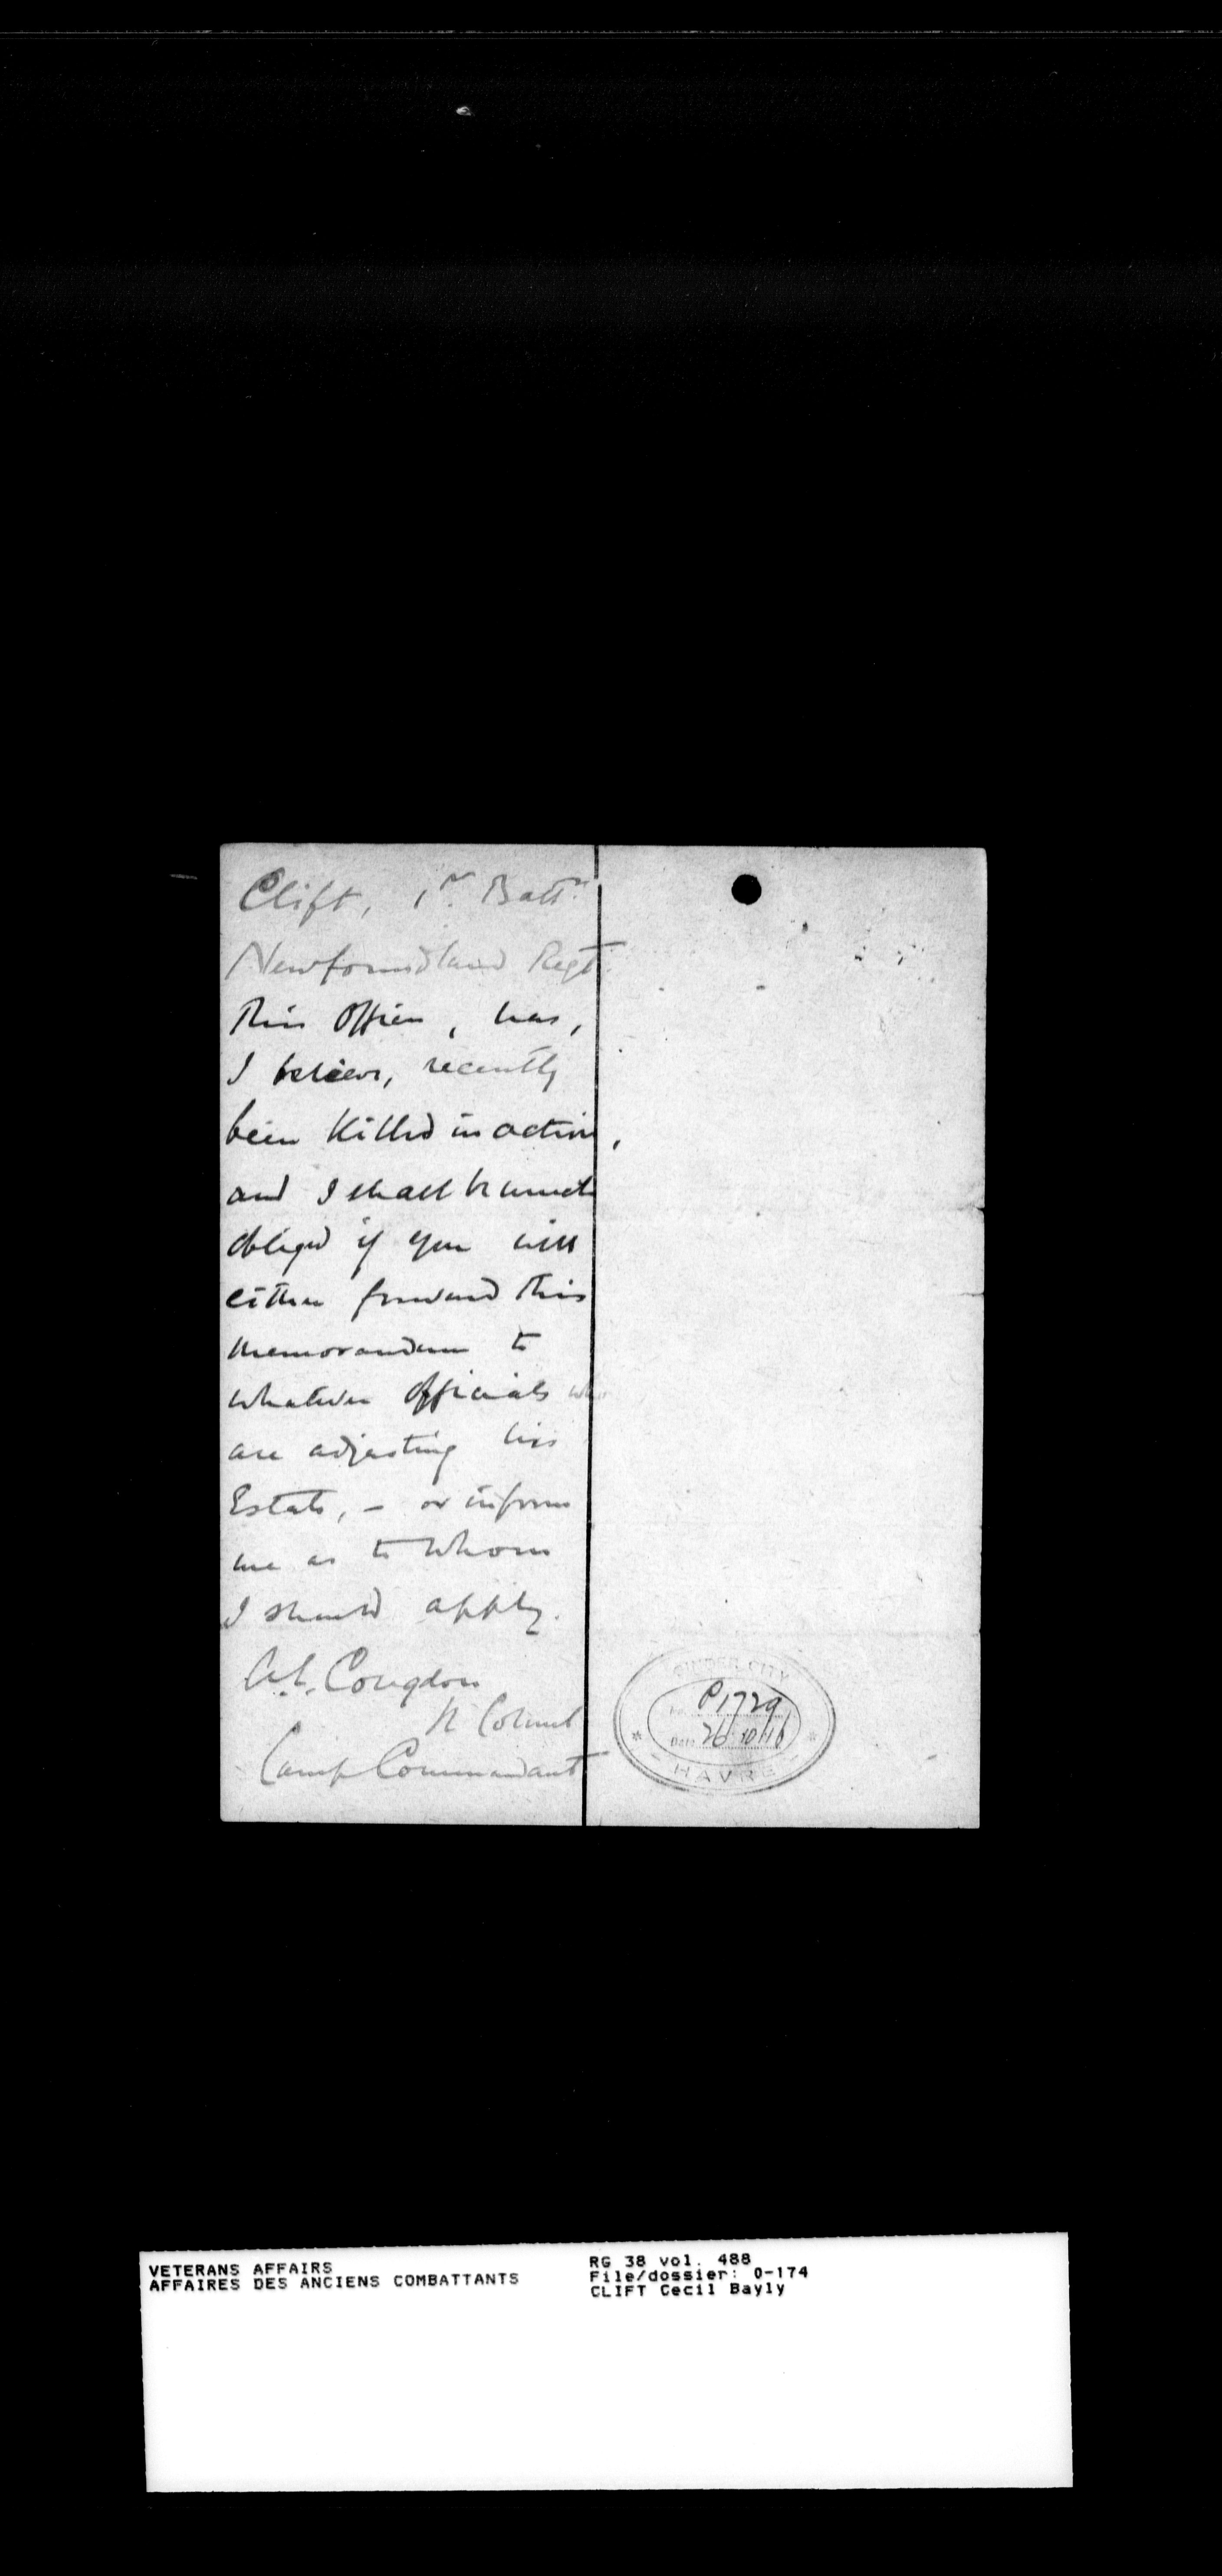 Clift, 1st. Battn.
Newfoundland Regt.
This Officer, has,
I believe, recently
been Killed in action,
and I shall be much
obliged if you will
either forward this
memorandum to
whatever officials who
are adjusting his
Estate, - or inform
me as to whom
I should apply.
A.L. Congdon
Lt Colonel
Camp Commandant
CINDER CITY
No. P1729
Date 26.10.16
* HAVRE *
VETERANS AFFAIRS
AFFAIRES DES ANCIENS COMBATTANTS
RG 38 vol. 488
File/dossier: 0-174
CLIFT Cecil Bayly